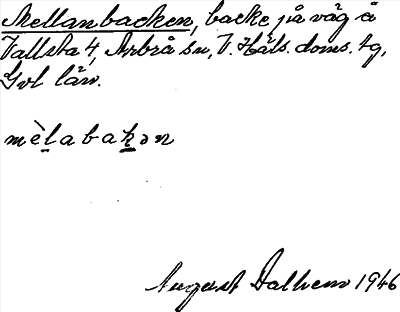 Mellanbacken, backe på väg å
Vallsta 4, Arbrå sn, V. Häls. doms. tg,
Gvl län.
mèlabakən
August Dalhem 1946